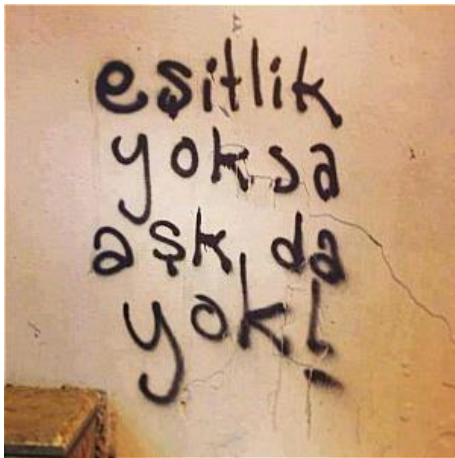 eşitlik
yoksa
aşk da
yok!